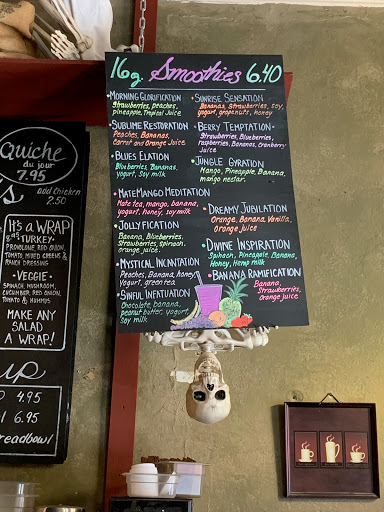 16oz. Smoothies 6.40
Morning Glorification
Strawberries, peaches,
pineapple, Tropical Juice
Sublime Restoration
Peaches, Bananas,
Carrot and Orange Juice
Blues Elation
Blueberries, Bananas,
yogurt, Soy milk
MateMango Meditation
Mate tea, mango, banana,
yogurt, honey, soy milk
Jollyfication
Banana, Blueberries,
Strawberries, spinach,
orange juice.
Mystical Incantation
Peaches, Banana, honey,
Yogurt, green tea.
Sinful Infatuation
Chocolate, banana,
peanut butter, yogurt,
Soy milk
Sunrise Sensation
Bananas, Strawberries, soy,
yogurt, grapenuts, honey
Berry Temptation
Strawberries, Blueberries,
raspberries, Bananas, Cranberry
Juice
Jungle Gyration
Mango, Pineapple, Banana,
mango nectar.
Dreamy Jubilation
Orange, Banana, Vanilla,
Orange juice
Divine Inspiration
Spinach, Pineapple, Banana,
Honey, Hemp milk
Banana Ramification
Banana,
Strawberries,
Orange juice
Quiche
du jour
7.95
add Chicken
2.50
It's a WRAP
Turkey
Provolone, Red Onion,
Tomato, Mixed Greens &
Ranch Dressing
Veggie
Spinach, Mushroom,
Cucumber, Red Onion,
Tomato & Hummus
MAKE ANY
SALAD
A WRAP!
up
4.95
6.95
readbowl